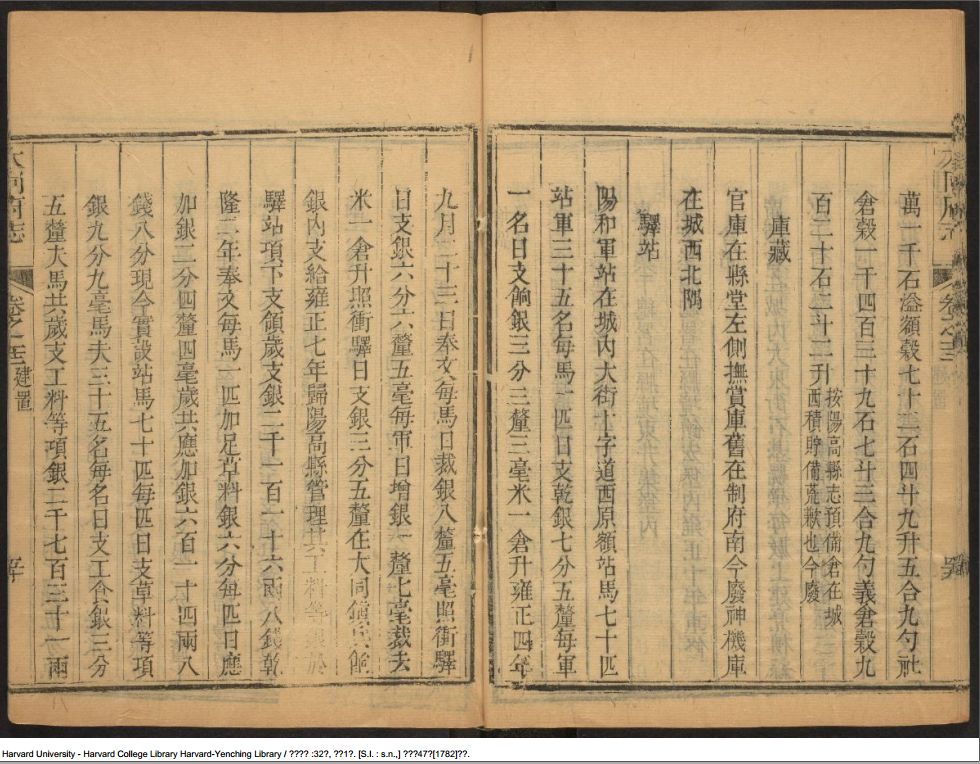 萬一千石溢額穀七十二石四斗九升五合九勺社
倉穀一千四百三十九石七斗三合九勺義倉穀九
百二十石二斗二升按陽高縣志預備倉在城
西積貯備荒歉也今廢
庫藏
官庫在縣堂左側撫賞庫舊在制府南今廢神機庫
在城西北隅
驛站
陽和軍站在城內大街十字道西原額站馬七十匹
站軍三十五名每馬一匹日支乾銀七分五釐每軍
一名日支餉銀三分三釐三毫米一倉升雍正四年
九月二十三日奉文每馬日裁銀八釐五毫照衝驛
日支銀六分六釐五毫每軍日增銀一釐七毫裁去
米一倉升照衝驛日支銀三分五釐在大同鎮兵餉
銀內支給雍正七年歸陽高縣管理其工料等於
驛站項下支領歲支銀二千一百一十六兩八錢乾
隆二年奉文每馬一匹加足草料銀六分每匹日應
加銀二分四釐四毫歲共應加銀六百一十四兩八
錢八分現今實設站馬七十匹每匹日支草料等項
銀九分九毫馬夫三十五名每名日支工食銀三分
五釐夫馬共歲支工料等項銀二千七百三十一兩
大同府志
卷之三
建置
Harvard University - Harvard College Library Harvard-Yenching Library / ???? :32?, ??1?. [S.l. : s.n.,] ???47?[1782]??.